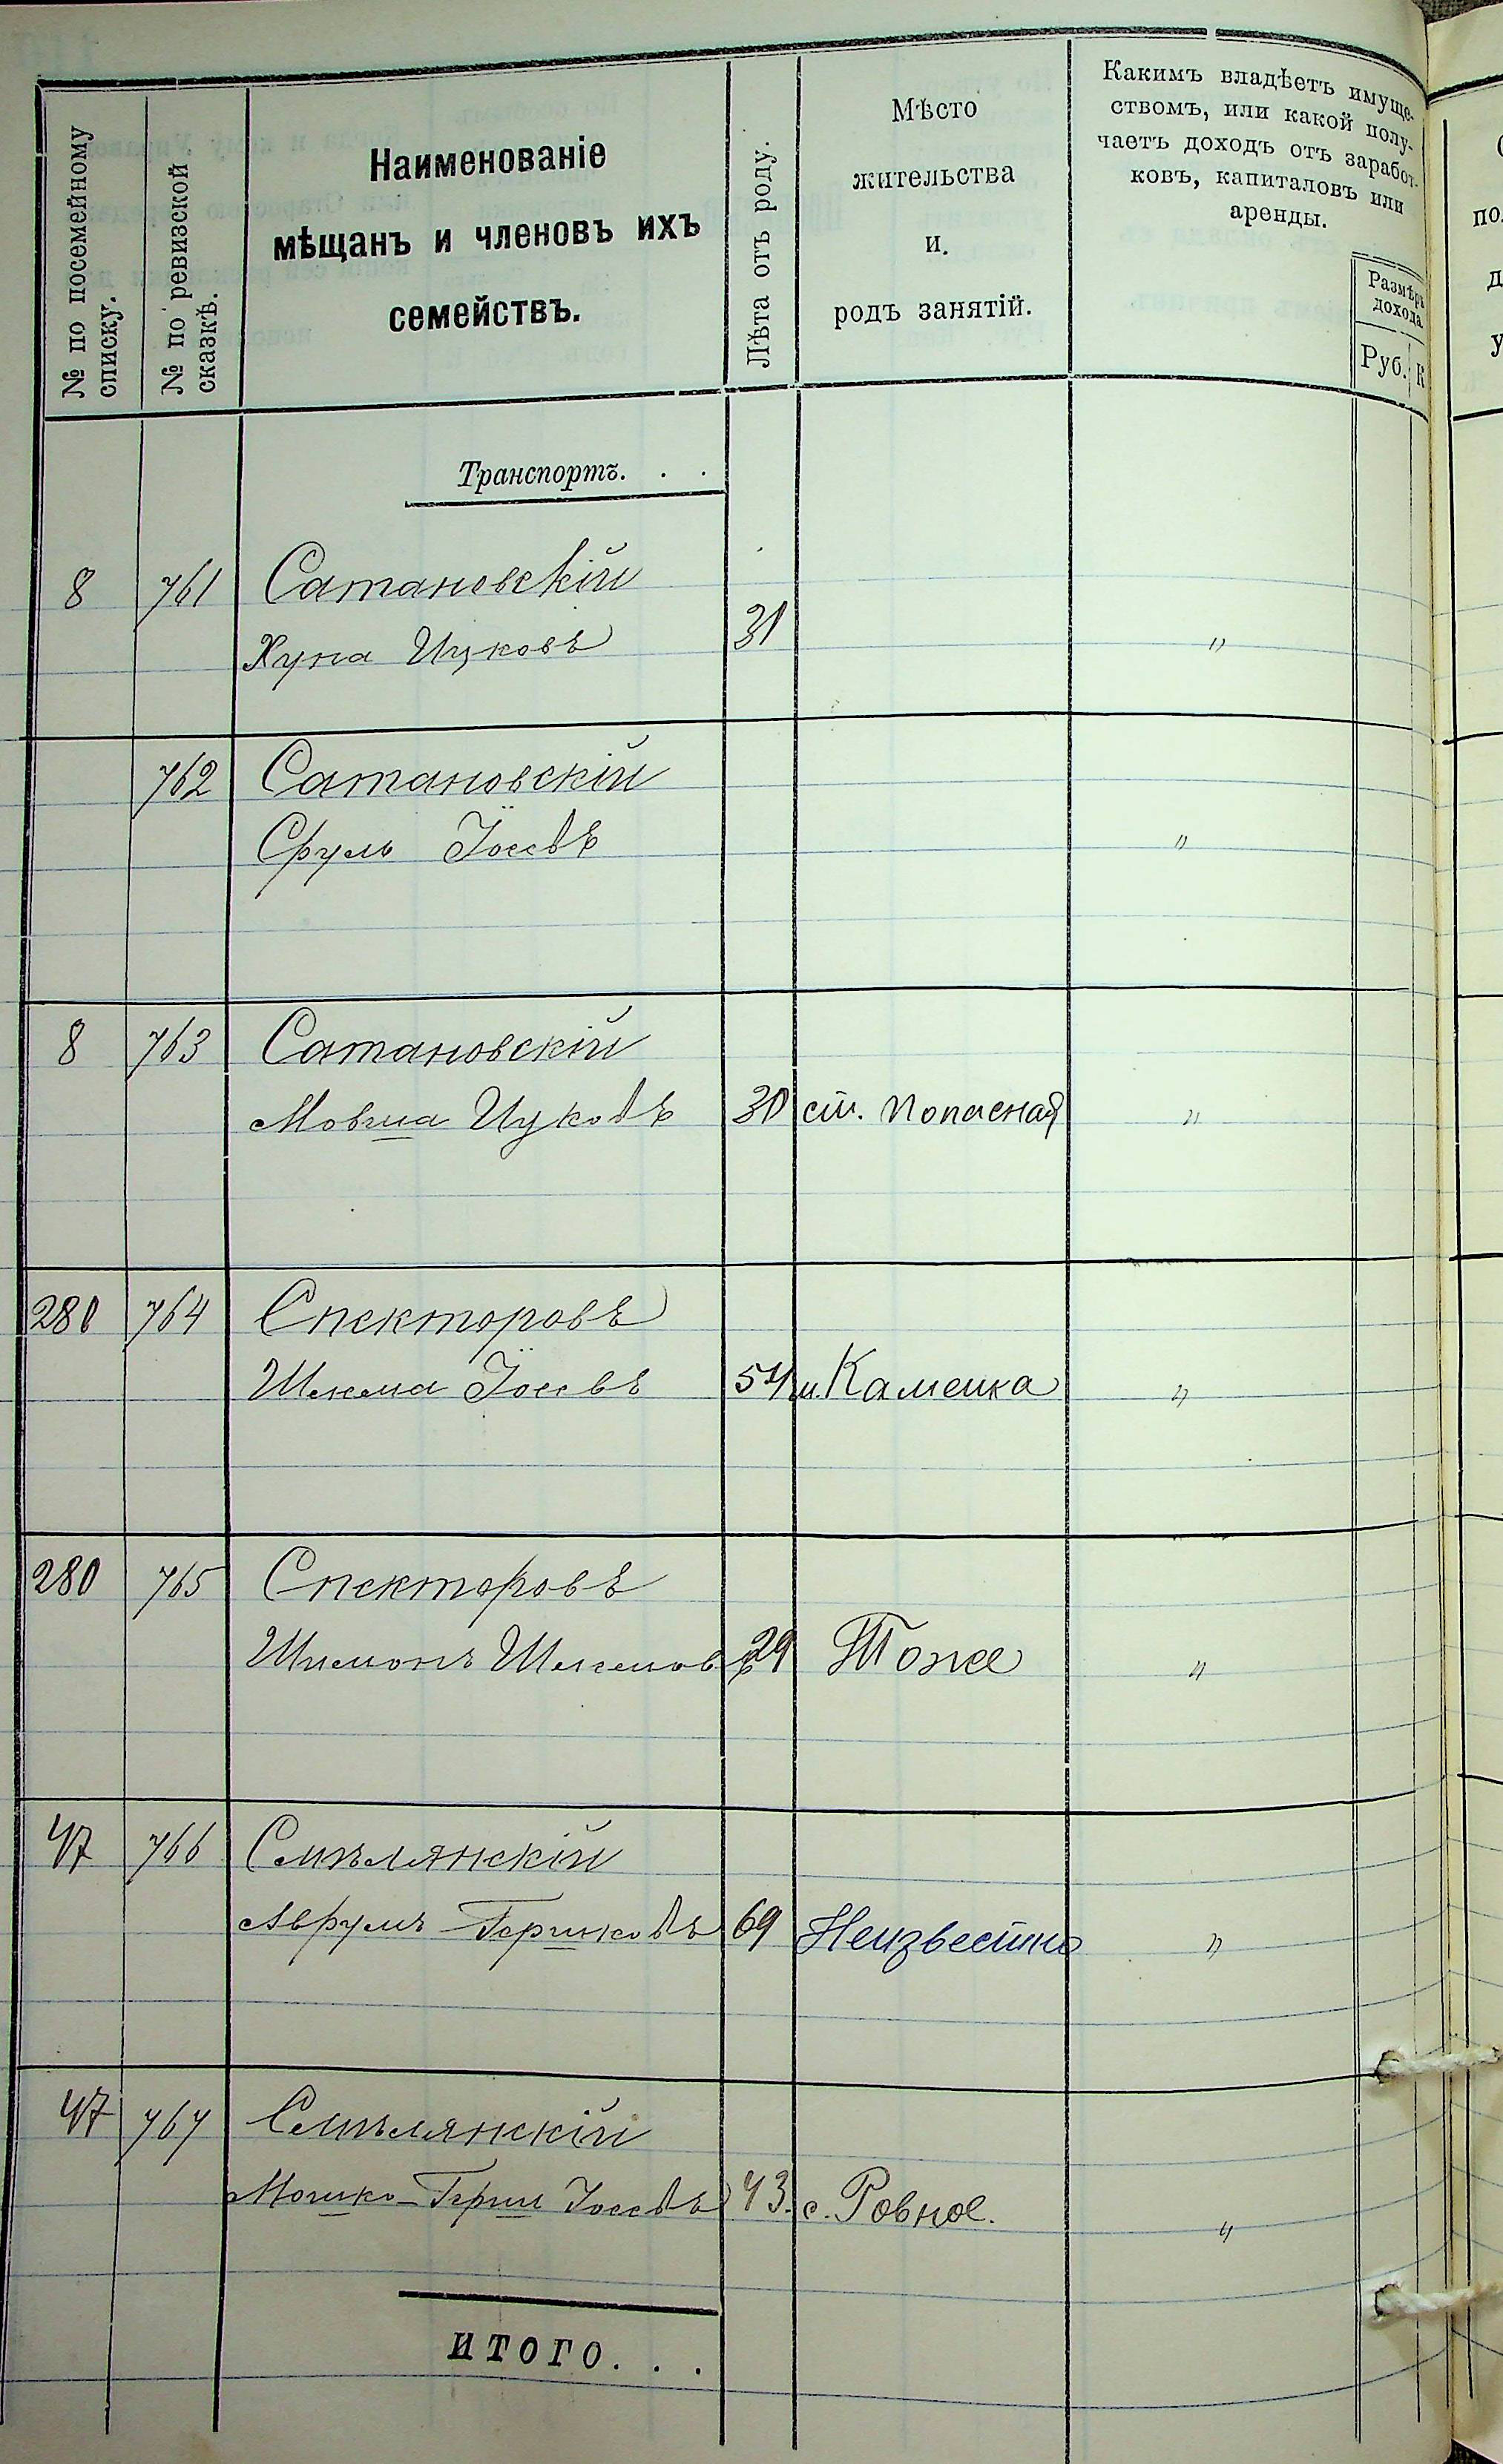 № по посемейному
списку.
№ по ревизской
сказкѣ.
Наименованіе
мѣщанъ и членовъ ихъ
семействъ.
Лѣта отъ роду.
Мѣсто
жительства
и.
родъ занятій.
Какимъ владѣетъ имуще-
ствомъ, или какой полу-
чаетъ доходъ отъ заработ-
ковъ, капиталовъ или
аренды.
Размѣръ
дохода
Руб. К
Транспортъ. . .
8 761 Сатановскій
Хуна Ицковъ 31 "
762 Сатановскій
Сруль Іосевъ "
8 763 Сатановскій
Мовша Ицковъ 30 ст. Попасная "
280 764 Спекторовъ
Шлема Іосевъ 54 м. Каменка "
280 765 Спекторовъ
Шимонъ Шлемовъ 29 Тоже "
47 766 Смѣлянскій
Аврумъ Гершковъ 69 Неизвестно "
47 767 Смѣлянскій
Мошко-Герш Іосевъ 43. с. Ровное. "
ИТОГО. . .